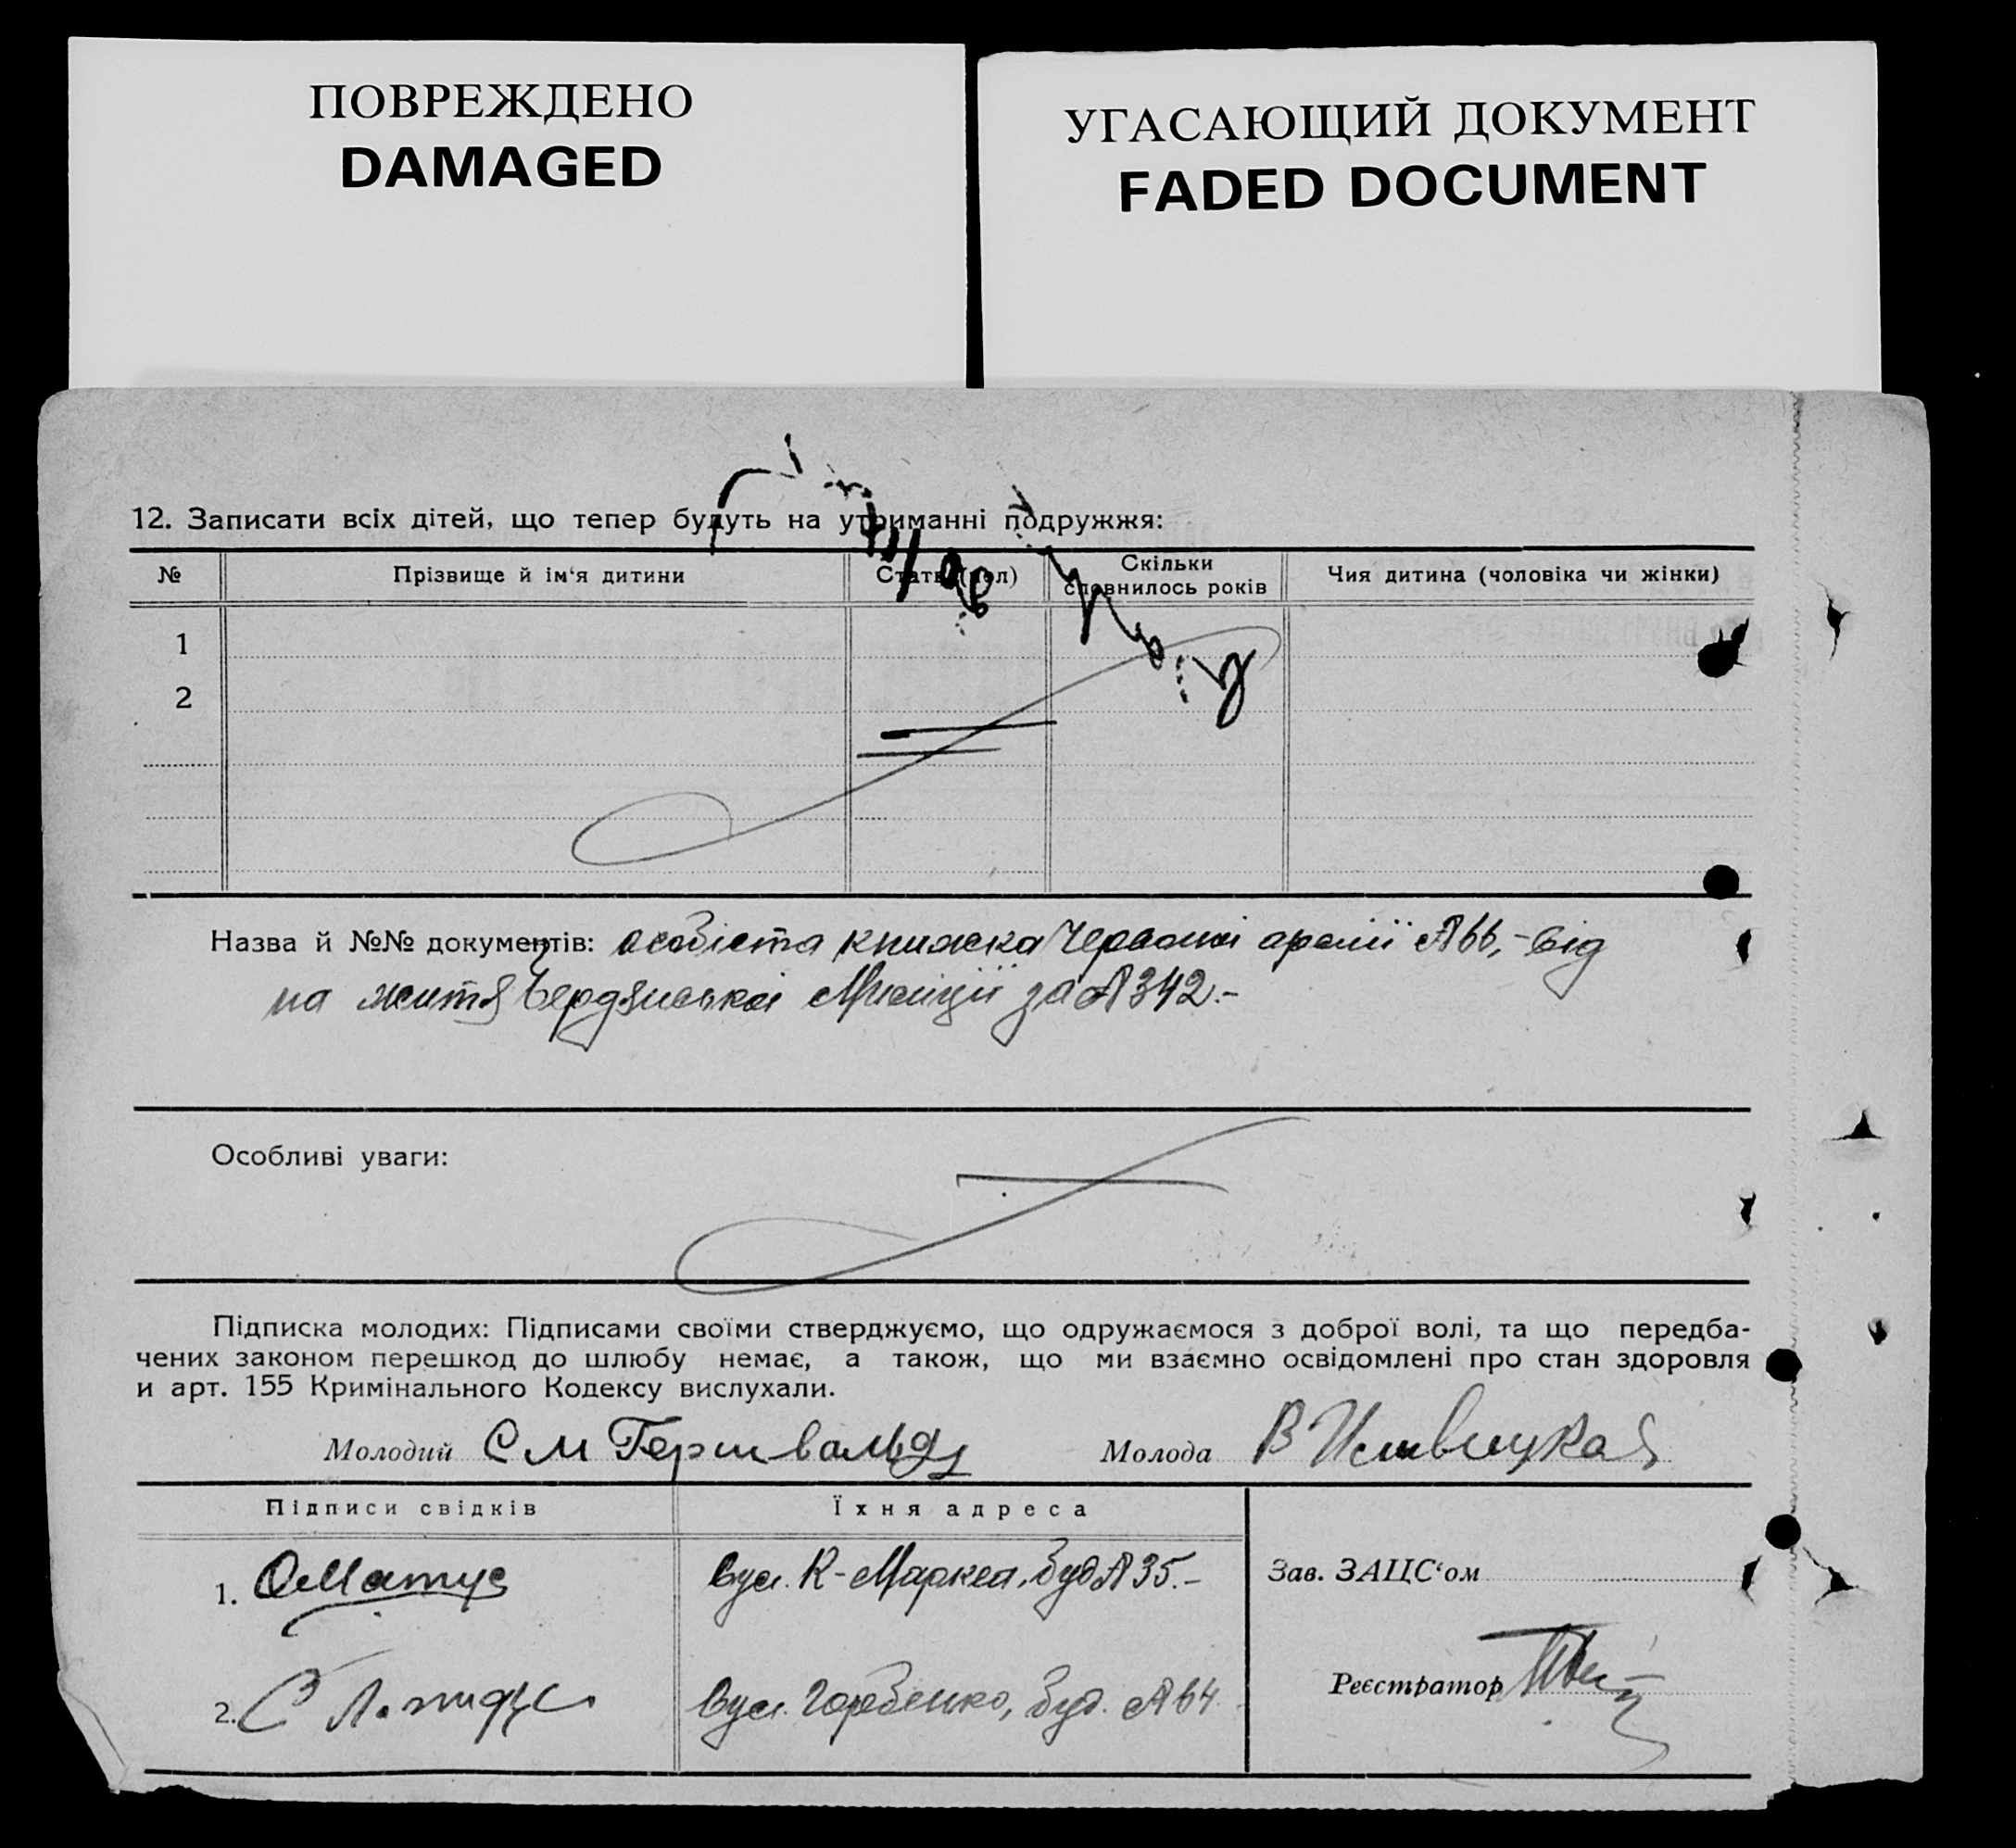 ПОВРЕЖДЕНО
DAMAGED
УГАСАЮЩИЙ ДОКУМЕНТ
FADED DOCUMENT
12. Записати всіх дітей, що тепер будуть на утриманні подружжя:
№ Прізвище й ім‘я дитини Стать (пол) Скільки сповнилось років Чия дитина (чоловіка чи жінки)
1
2
Назва й №№ документів: особіста книжка Червоної армії №66,- від
на життя Бердянської Міліції за №342.-
Особливі уваги:
Підписка молодих: Підписами своїми стверджуємо, що одружаємося з доброї волі, та що передба-
чених законом перешкод до шлюбу немає, а також, що ми взаємно освідомлені про стан здоровля
и арт. 155 Кримінального Кодексу вислухали.
Молодий С М Гершвальд Молода В
Підписи свідків Їхня адреса
1. Матус вул. К-Маркса, буд №35.-
Зав. ЗАЦС‘ом
2. С Лапидус вул. Горбенко, буд. №64
Реєстратор